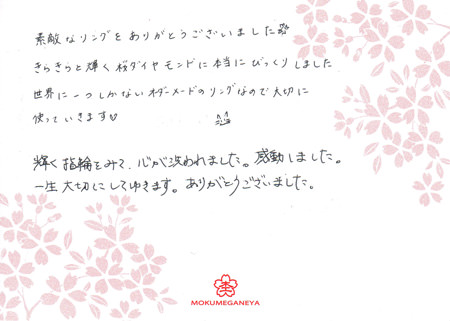 素敵なリングをありがとうございました
きらきらと輝く桜ダイヤモンドに本当にびっくりしました
世界に一つしかないオーダーメードのリングなので大切に
使っていきます♡
輝く指輪をみて、心が洗われました。感動しました。
一生大切にしてゆきます。ありがとうございました。
杢
MOKUMEGANEYA